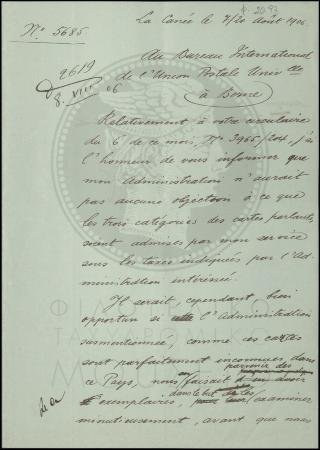 La Canée le 7/20 Août 1906
No 5685.
2619
8. VIII 06
Au Bureau International
de l'Union Postale Univlle
à Berne
Relativement à votre circulaire
du 6 de ce mois, No 3966/204, j'ai
l'honneur de vous informer que
mon Administration n'aurait
pas aucune objection à ce que
les trois catégories des cartes parlantes
soient admises par mon service
sous les taxes indiquées par l'Ad-
ministration intéressée.
Il serait, cependant, bien
opportun si l'Administration
susmentionnée, comme ces cartes
sont parfaitement inconnues dans
ce Pays, nous en faisait parvenir des
exemplaires, dans le but de les examiner
minutieusement, avant que nous